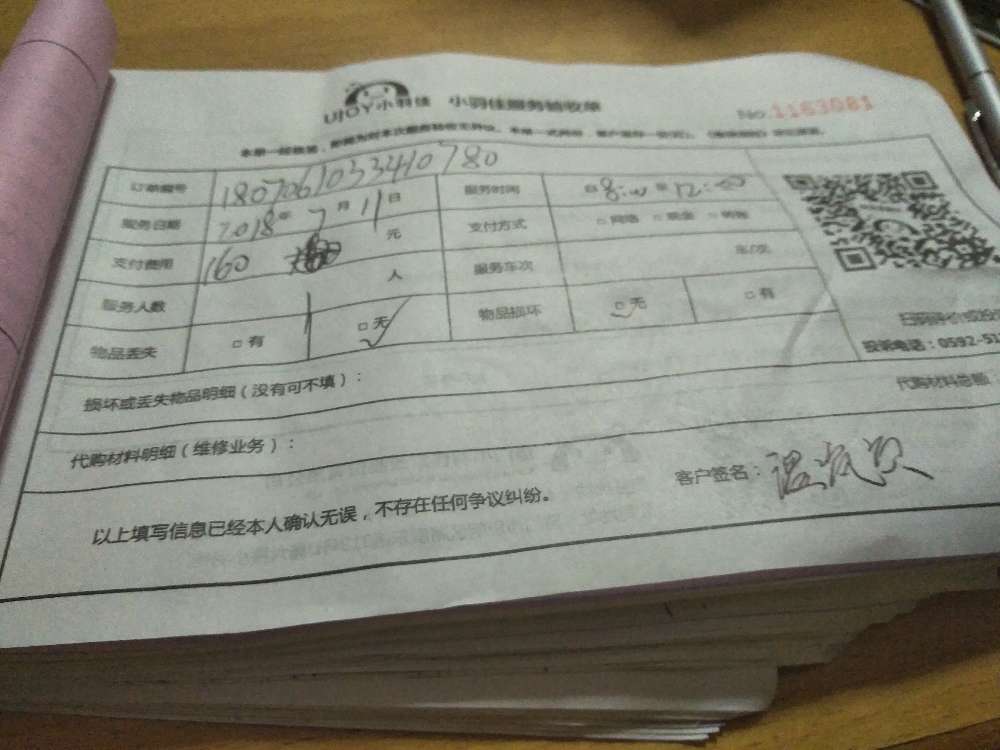 UJOY小羽佳 小羽佳服务验收单 No.1163081
订单编号 1807061033410780 服务时间 自8:00至12:00
服务日期 2018年7月11日 支付方式 □网络 □现金
支付费用 160 元 服务车次 车/次
服务人数 人 物品损坏 □无 □有
物品丢失 □有 □无
投诉电话:0592-51
损坏或丢失物品明细(没有可不填):
代购材料明细(维修业务): 代购材料总额:
客户签名:
以上填写信息已经本人确认无误,不存在任何争议纠纷。